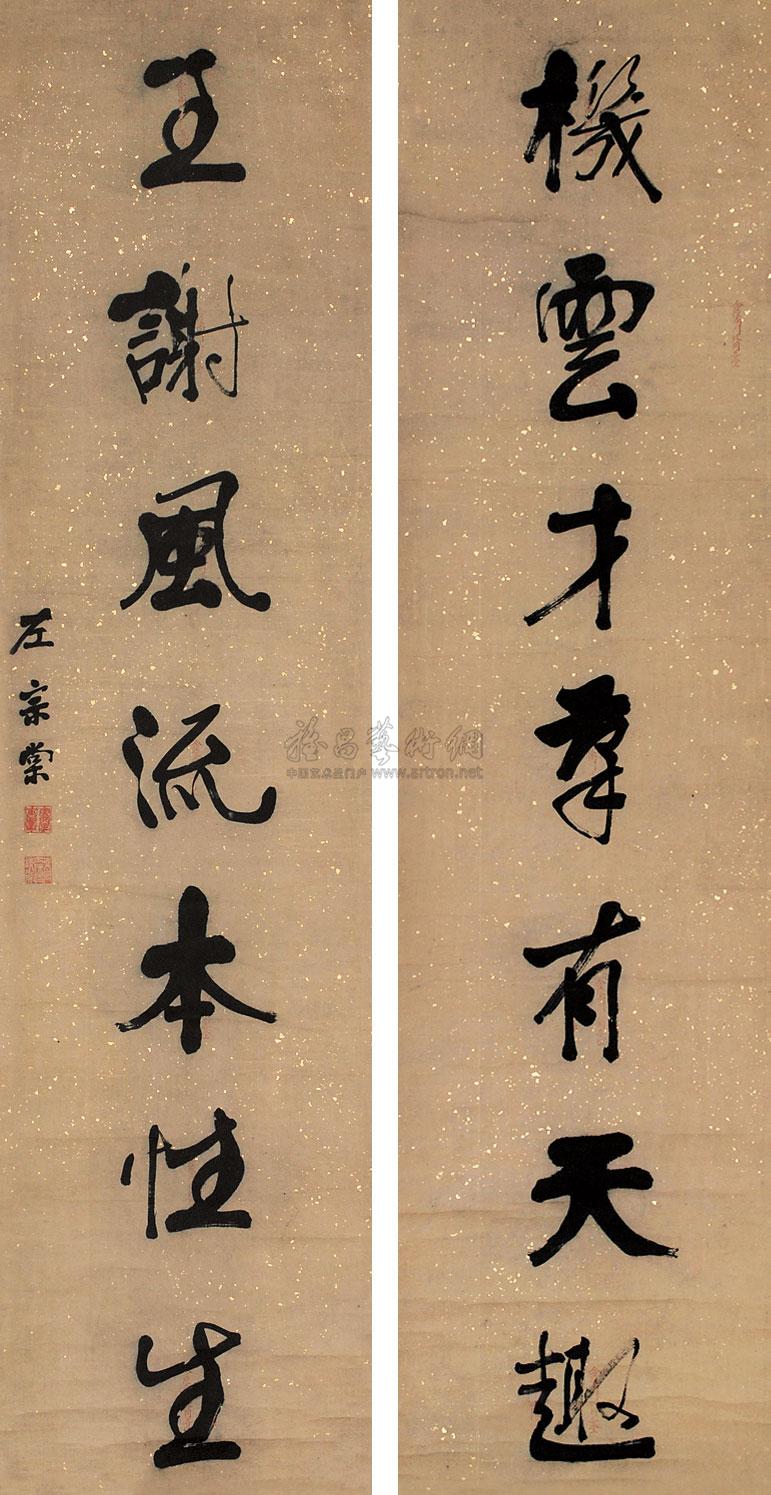 機雲才羣有天趣
王謝風流本性生
左宗棠
雅昌藝術網
中国艺术品门户 www.artron.net